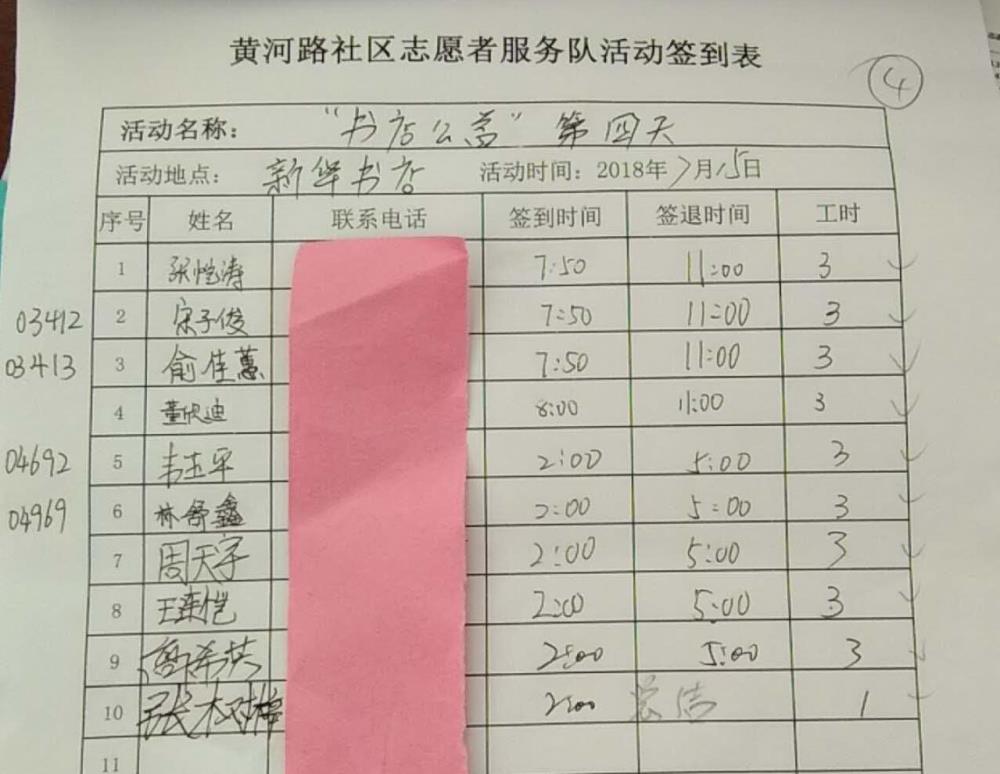 黄河路社区志愿者服务队活动签到表
④
活动名称： “书店公益” 第四天
活动地点： 新华书店 活动时间：2018年7月15日
序号 姓名 联系电话 签到时间 签退时间 工时
1 张恺涛 7:50 11:00 3 ✓
03412 2 宋子俊 7:50 11:00 3 ✓
03413 3 俞佳蕙 7:50 11:00 3 ✓
4 董欣迪 8:00 11:00 3 ✓
04692 5 韦玉平 2:00 5:00 3 ✓
04969 6 林舒鑫 2:00 5:00 3 ✓
7 周天宇 2:00 5:00 3 ✓
8 王 恺 2:00 5:00 3 ✓
9 希 2:00 5:00 3 ✓
10 张树 2:00 总结 1 ✓
11